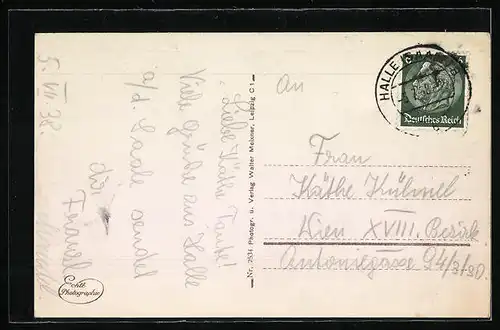 5. VII. 38.
Liebe Käthe Tante!
Viele Grüße aus Halle
a/d. Saale sendet
die
Nr. 2534 Photogr. u. Verlag Walter Meixner, Leipzig C 1
Echte
Photographie
An
Frau
Käthe Kühnel
Wien XVIII. Bezirk
Antonigasse 94/3/20.
HALLE (SAALE)
Deutsches Reich